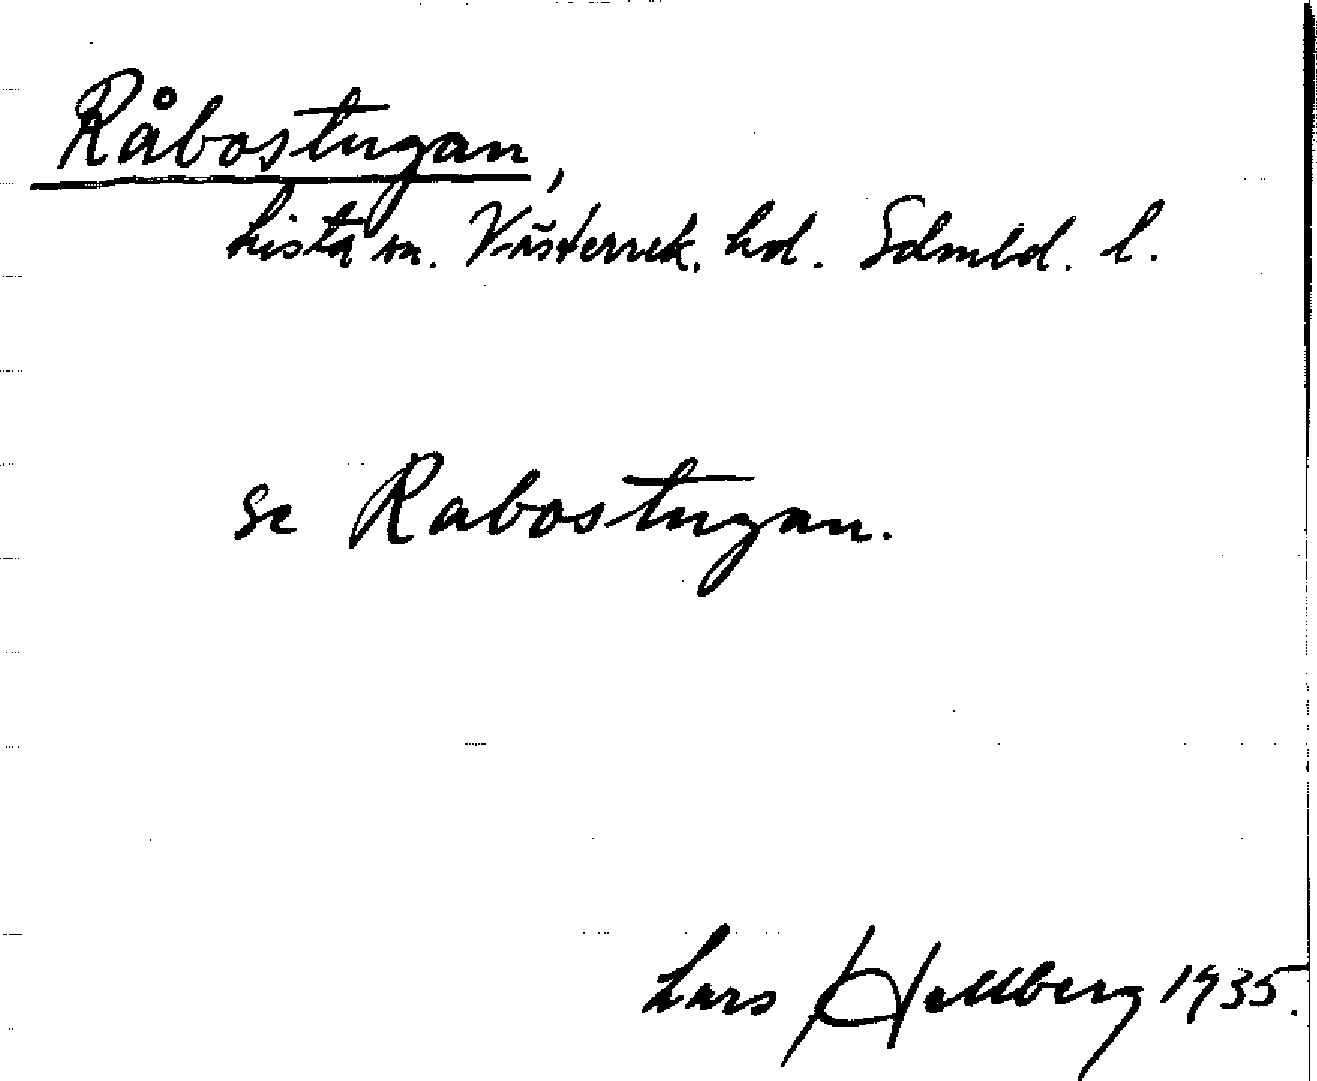 Råbostugan,
Lista sn. Västerrek. hd. Sdmld. l.
se Rabostugan.
Lars Hellberg 1935.